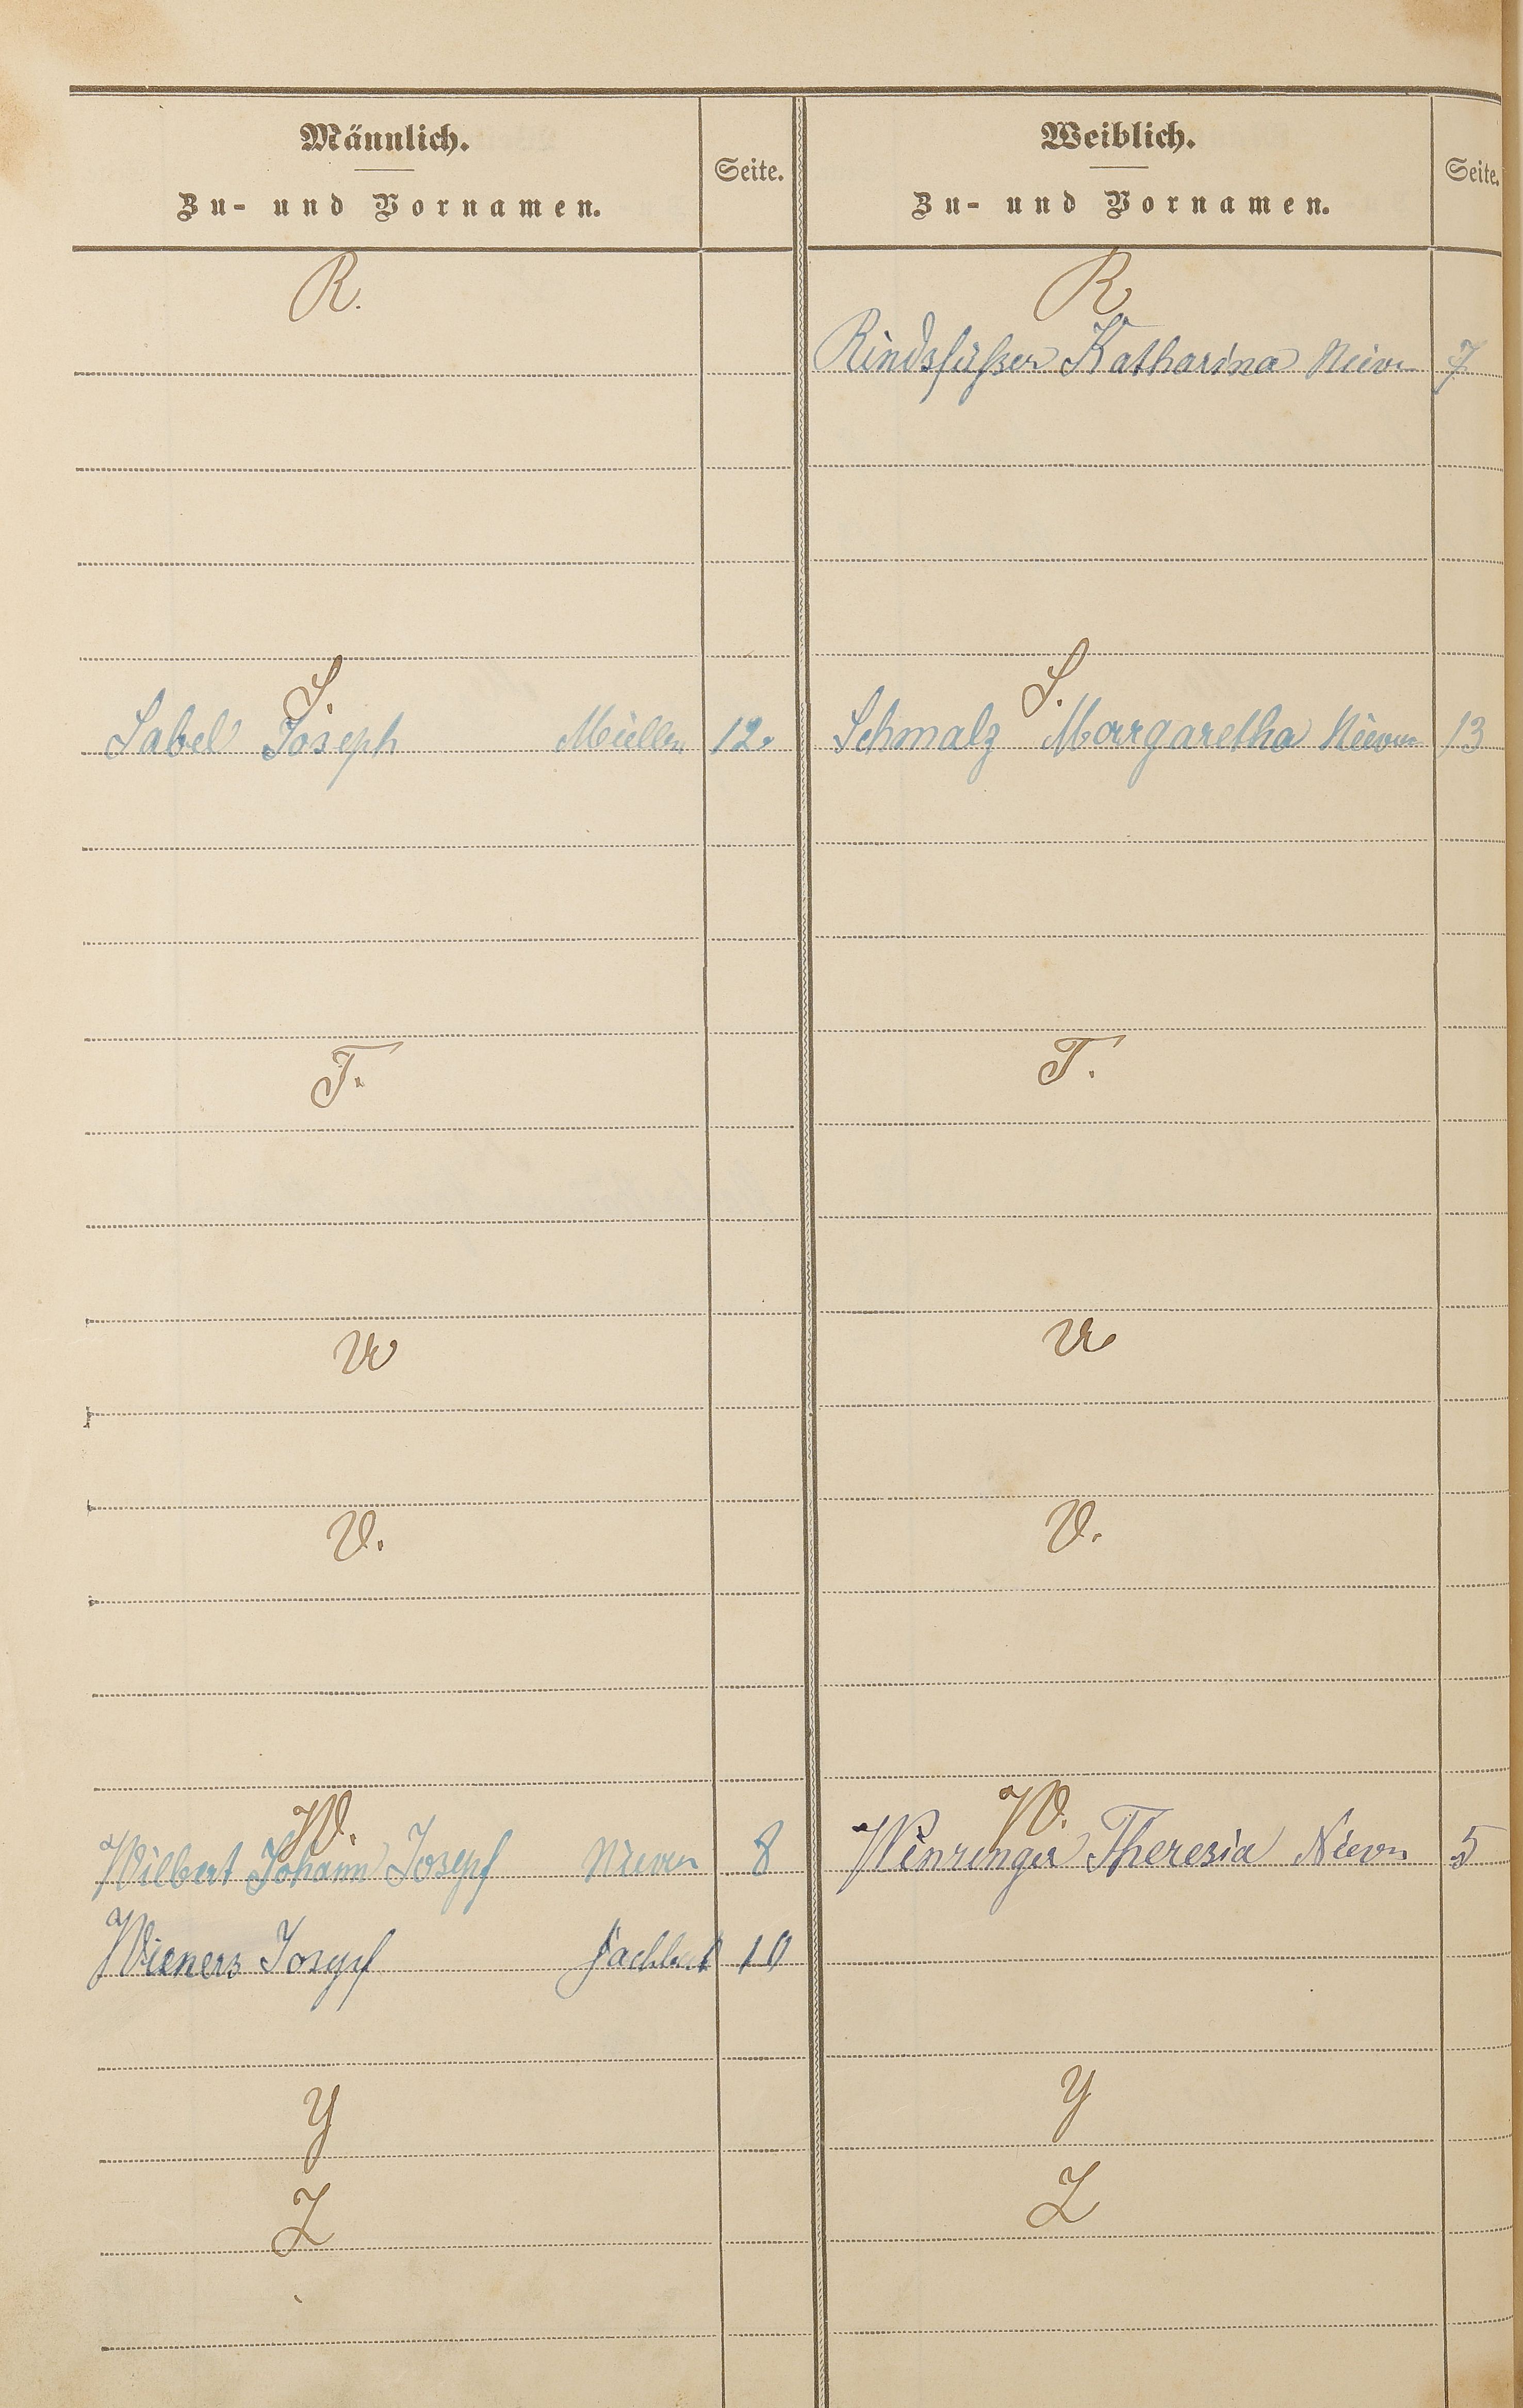 Männlich.
Zu- und Vornamen.
Seite.
Weiblich.
Zu- und Vornamen.
Seite.
R.
R
Rindsfüßer Katharina Nievern 7
S.
S.
Sabel Joseph Müllen 12.
Schmalz Margaretha Nievern 13
T.
T.
U
U
V.
V.
W.
W.
Wilbert Johann Josepf Nievern 8
Weinringer Theresia Nievern 5
Wieners Josepf Fachbach 10
Y
Y
Z
Z